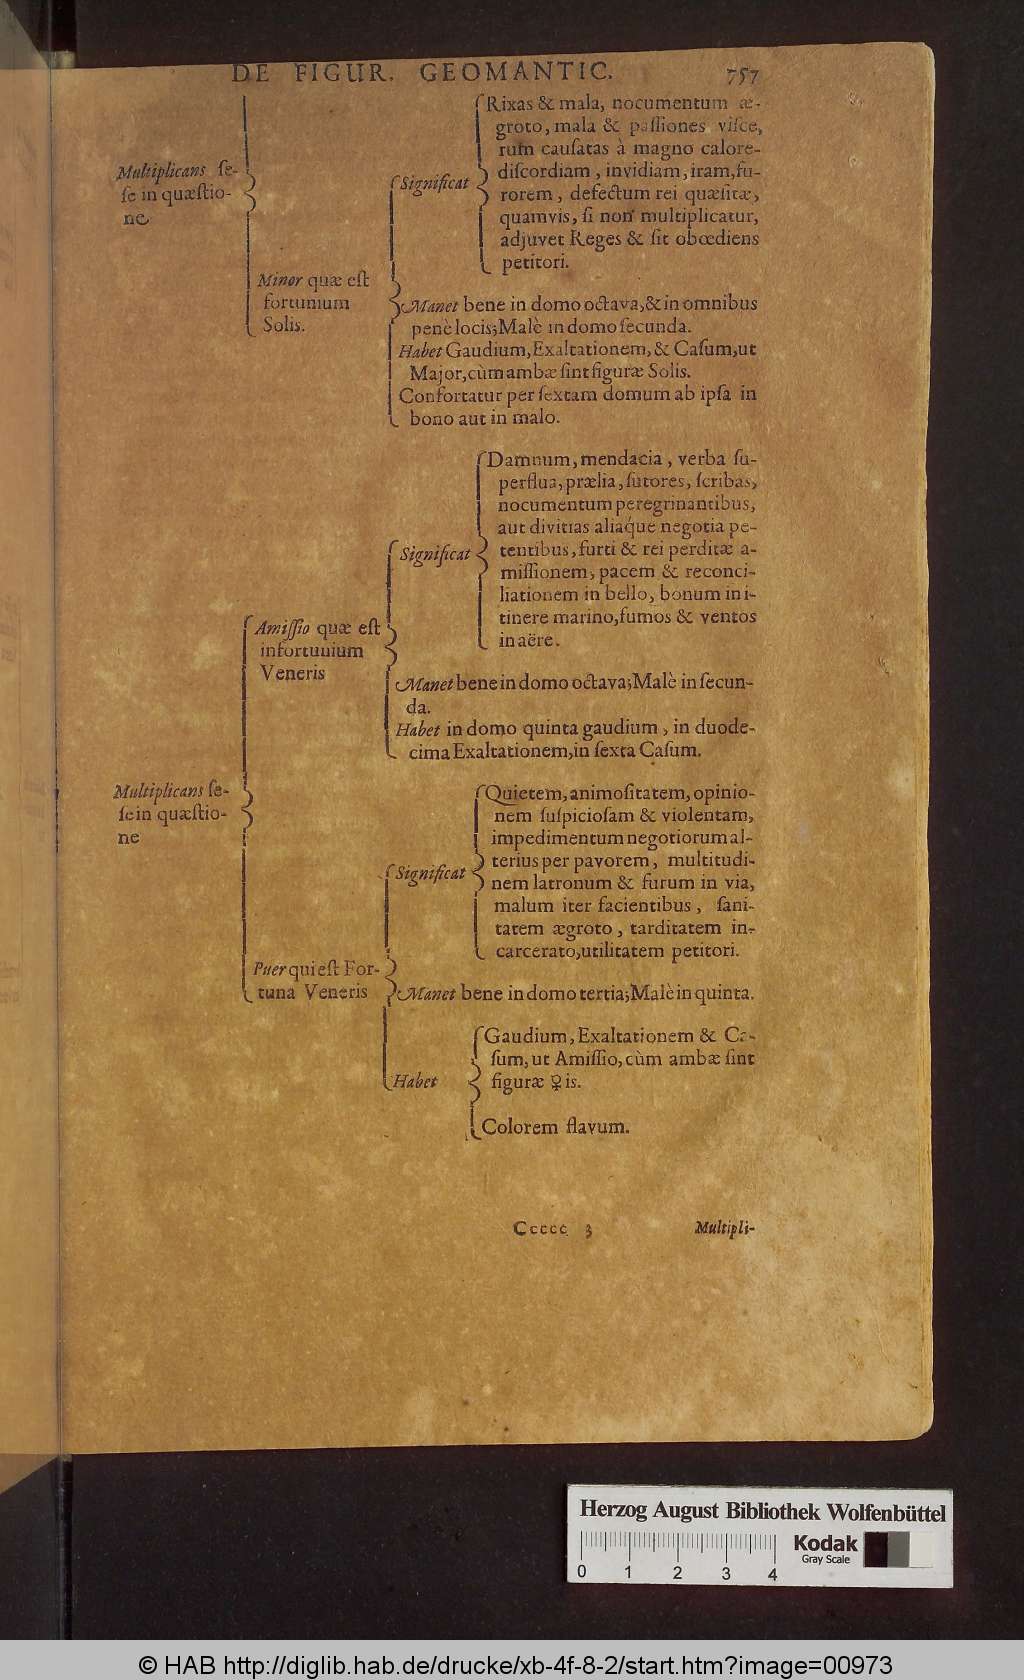 DE FIGUR. GEOMANTIC. 757
Multiplicans ſe-
ſe in quæſtio-
ne
Minor quæ eſt
fortunium
Solis.
Significat
Rixas & mala, nocumentum æ-
groto, mala & paſſiones viſce,
rum cauſatas à magno calore-
diſcordiam, invidiam, iram, fu-
rorem, defectum rei quæſitæ,
quamvis, ſi non multiplicatur,
adjuvet Reges & ſit obœdiens
petitori.
Manet bene in domo octava, & in omnibus
penè locis; Malè in domo ſecunda.
Habet Gaudium, Exaltationem, & Caſum, ut
Major, cùm ambæ ſint figuræ Solis.
Confortatur per ſextam domum ab ipſa in
bono aut in malo.
Multiplicans ſe-
ſe in quæſtio-
ne
Amiſſio quæ eſt
infortunium
Veneris
Significat
Damnum, mendacia, verba ſu-
perflua, prælia, ſutores, ſcribas,
nocumentum peregrinantibus,
aut divitias aliaq́ue negotia pe-
tentibus, furti & rei perditæ a-
miſſionem, pacem & reconci-
liationem in bello, bonum in i-
tinere marino, fumos & ventos
in aëre.
Manet bene in domo octava; Malè in ſecun-
da.
Habet in domo quinta gaudium, in duode-
cima Exaltationem, in ſexta Caſum.
Puer qui eſt For-
tuna Veneris
Significat
Quietem, animoſitatem, opinio-
nem ſuſpicioſam & violentam,
impedimentum negotiorum al-
terius per pavorem, multitudi-
nem latronum & furum in via,
malum iter facientibus, ſani-
tatem ægroto, tarditatem in-
carcerato, utilitatem petitori.
Manet bene in domo tertia; Malè in quinta.
Habet
Gaudium, Exaltationem & Ca-
ſum, ut Amiſſio, cùm ambæ ſint
figuræ ♀is.
Colorem flavum.
Ccccc 3 Multipli-
Herzog August Bibliothek Wolfenbüttel
Kodak
Gray Scale
0 1 2 3 4
© HAB http://diglib.hab.de/drucke/xb-4f-8-2/start.htm?image=00973